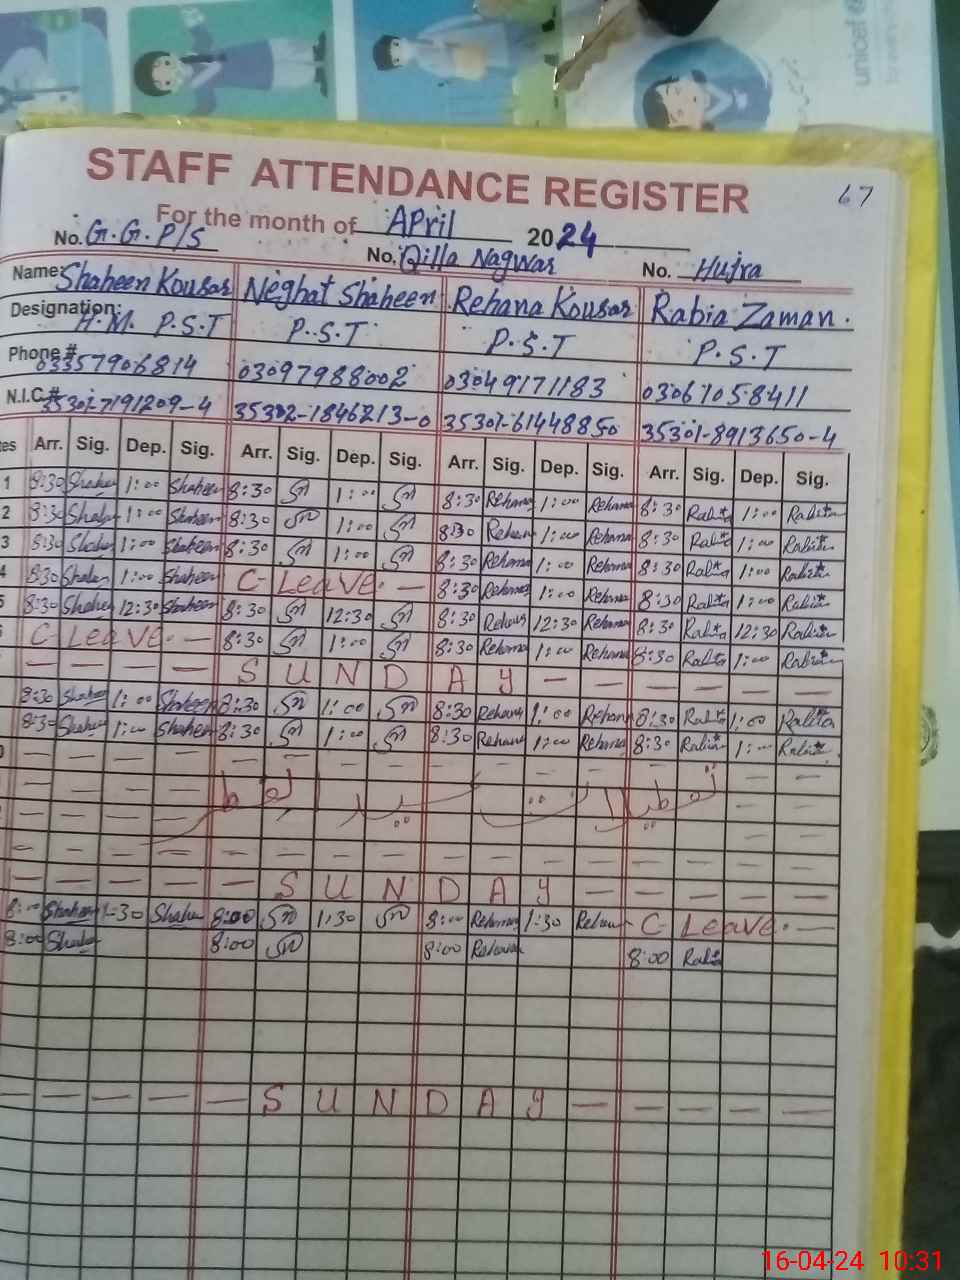 unicef
67
STAFF ATTENDANCE REGISTER
For the month of April 2024
No. G.G.P/S No. Qilla Nagwar No. Hujra
Name: Shaheen Kousar Neghat Shaheen Rehana Kousar Rabia Zaman.
Designation: H.M. P.S.T P.S.T P.S.T P.S.T
Phone # 03357906814 03097988002 03049171183 03061058411
N.I.C.# 35301-7191209-4 35302-1846213-0 35301-61448850 35301-8913650-4
tes Arr. Sig. Dep. Sig. Arr. Sig. Dep. Sig. Arr. Sig. Dep. Sig. Arr. Sig. Dep. Sig.
1 8:30 Shaheen 1:00 Shaheen 8:30 1:00 8:30 Rehana 1:00 Rehana 8:30 Rabia 1:00 Rabia
2 8:30 Shaheen 1:00 Shaheen 8:30 1:00 8:30 Rehana 1:00 Rehana 8:30 Rabia 1:00 Rabia
3 8:30 Shaheen 1:00 Shaheen 8:30 1:00 8:30 Rehana 1:00 Rehana 8:30 Rabia 1:00 Rabia
4 8:30 Shaheen 1:00 Shaheen C-Leave. — 8:30 Rehana 1:00 Rehana 8:30 Rabia 1:00 Rabia
5 8:30 Shaheen 12:30 Shaheen 8:30 12:30 8:30 Rehana 12:30 Rehana 8:30 Rabia 12:30 Rabia
C-Leave. — 8:30 1:00 8:30 Rehana 1:00 Rehana 8:30 Rabia 1:00 Rabia
— — — — S U N D A Y — — — — — —
8:30 Shaheen 1:00 Shaheen 8:30 1:00 8:30 Rehana 1:00 Rehana 8:30 Rabia 1:00 Rabia
8:30 Shaheen 1:00 Shaheen 8:30 1:00 8:30 Rehana 1:00 Rehana 8:30 Rabia 1:00 Rabia
تعطیلات عید الفطر
— — — — — S U N D A Y — — — — —
8:00 Shaheen 1:30 Shaheen 8:00 1:30 8:00 Rehana 1:30 Rehana C-Leave. —
8:00 Shaheen 8:00 8:00 Rehana 8:00 Rabia
— — — — — S U N D A Y — — — — —
16-04-24 10:31